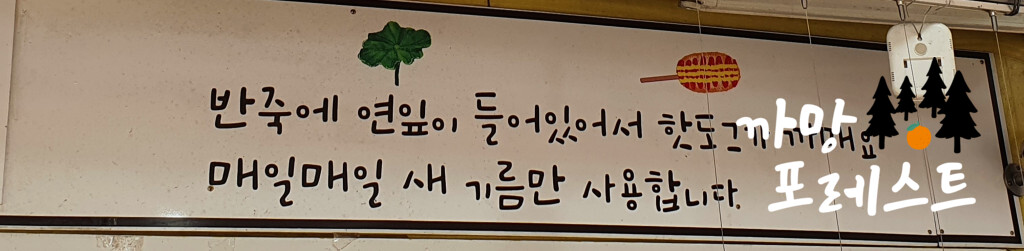 반죽에 연잎이 들어있어서 핫도그가
매일매일 새 기름만 사용합니다.
까망
포레스트